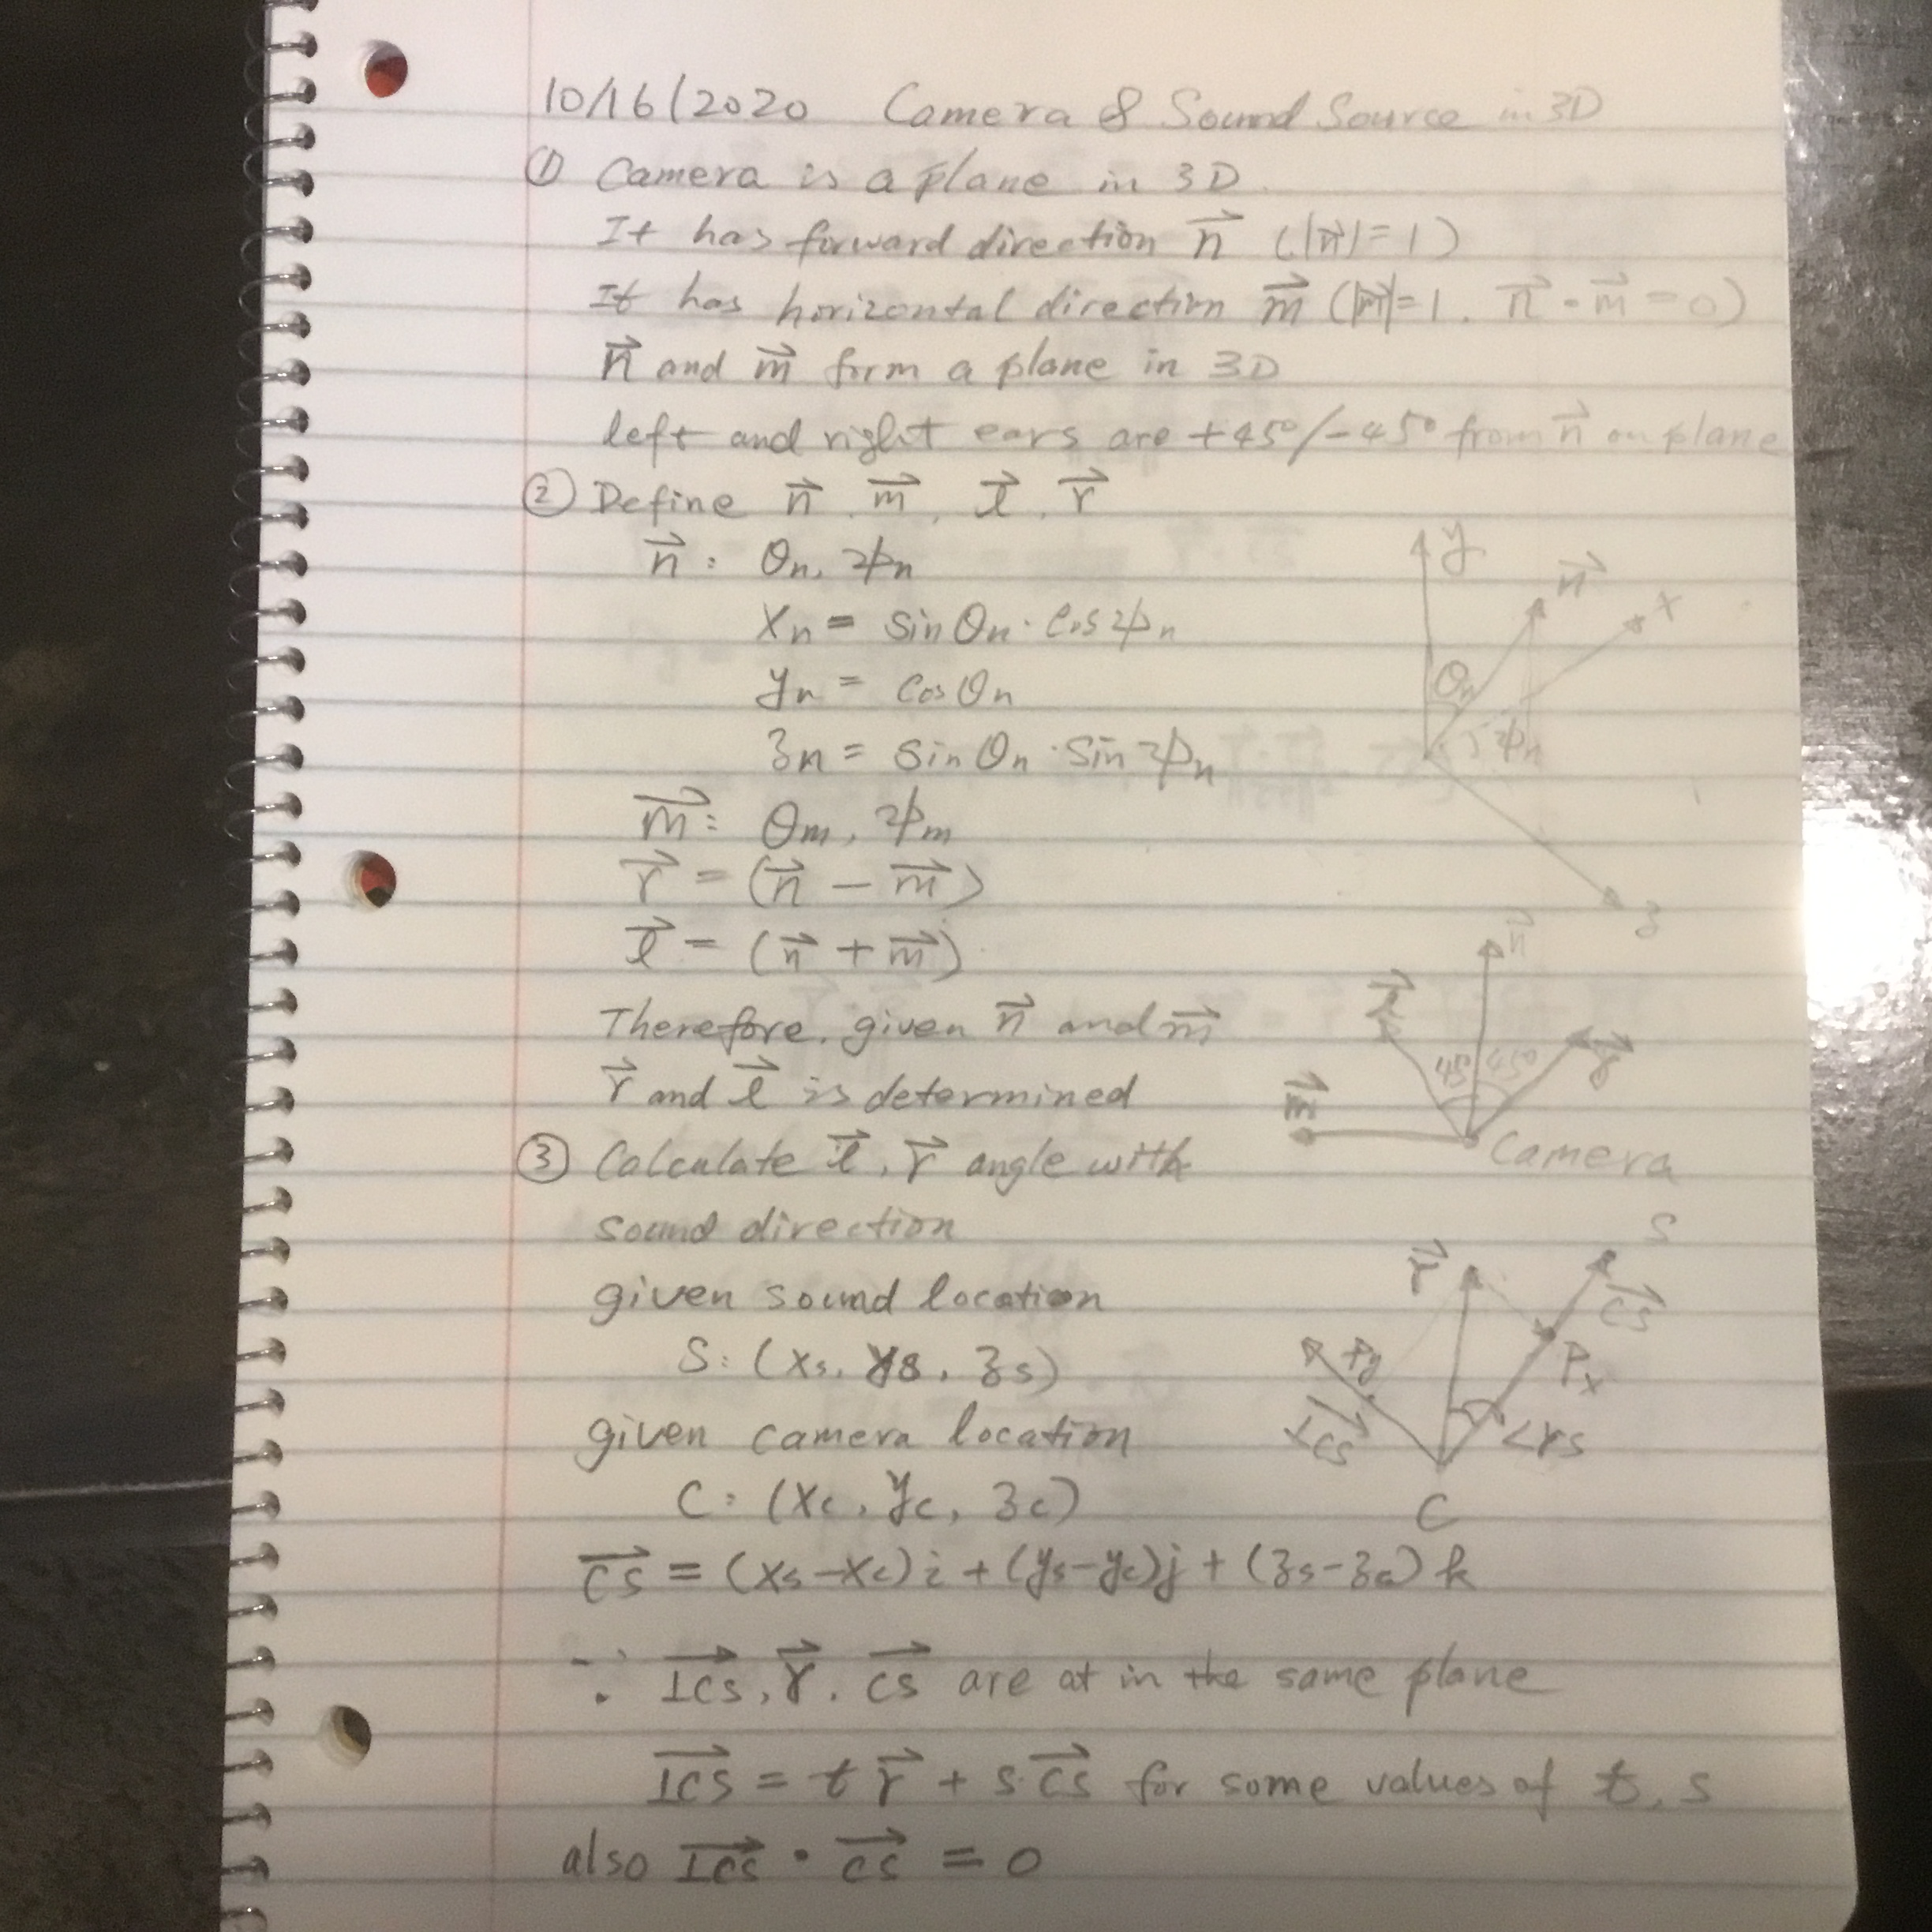 10/16/2020 Camera & Sound Source in 3D
① Camera is a plane in 3D
It has forward direction n⃗ (|n⃗|=1)
It has horizontal direction m⃗ (|m⃗|=1. n⃗·m⃗=0)
n⃗ and m⃗ form a plane in 3D
left and right ears are +45°/-45° from n⃗ on plane
② Define n⃗, m⃗, l⃗, r⃗
n⃗: θn, ψn
xn = sinθn·cosψn
yn = cosθn
zn = sinθn·sinψn
m⃗: θm, ψm
r⃗ = (n⃗ - m⃗)
l⃗ = (n⃗ + m⃗)
Therefore, given n⃗ and m⃗
r⃗ and l⃗ is determined
③ Calculate l⃗, r⃗ angle with
sound direction
given sound location
S: (xs, ys, zs)
given camera location
C: (xc, yc, zc)
CS⃗ = (xs-xc)i + (ys-yc)j + (zs-zc)k
∵ ⊥CS⃗, r⃗, CS⃗ are at in the same plane
⊥CS⃗ = t r⃗ + s·CS⃗ for some values of t, s
also ⊥CS⃗ · CS⃗ = 0
y
n⃗
x
θn
ψn
z
n⃗
l⃗
r⃗
45° 45°
m⃗
Camera
S
r⃗
CS⃗
Py
Px
⊥CS⃗
∠rs
C